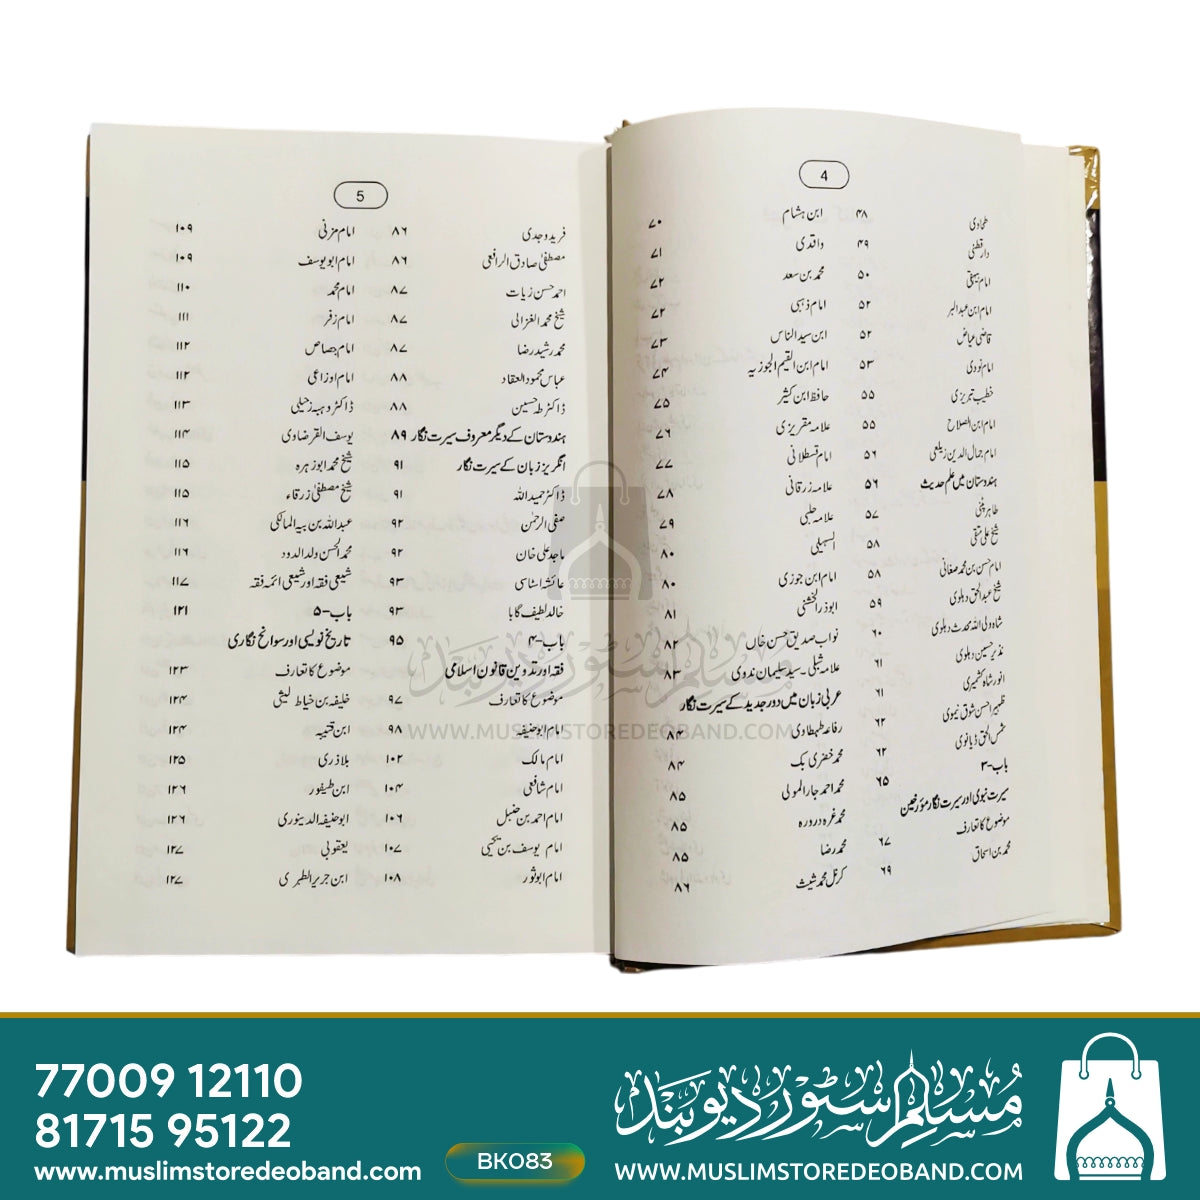 4
طحاوی ۴۸
دارقطنی ۴۹
امام بیہقی ۵۰
امام ابن عبدالبر ۵۲
قاضی عیاض ۵۲
امام نووی ۵۳
خطیب تبریزی ۵۵
امام ابن الصلاح ۵۵
امام جمال الدین زیلعی ۵۶
ہندوستان میں علم حدیث ۵۶
طاہر پٹنی ۵۷
شیخ علی متقی ۵۸
امام حسن بن محمد صغانی ۵۸
شیخ عبدالحق دہلوی ۵۹
شاہ ولی اللہ محدث دہلوی ۶۰
نذیر حسین دہلوی ۶۱
انور شاہ کشمیری ۶۱
ظہیر احسن شوق نیموی ۶۲
شمس الحق ڈیانوی ۶۲
باب-۳ ۶۵
سیرت نبوی اور سیرت نگار مؤرخین
موضوع کا تعارف ۶۷
محمد بن اسحاق ۶۹
ابن ہشام ۷۰
واقدی ۷۱
محمد بن سعد ۷۲
امام ذہبی ۷۲
ابن سید الناس ۷۳
امام ابن القیم الجوزیہ ۷۴
حافظ ابن کثیر ۷۵
علامہ مقریزی ۷۶
امام قسطلانی ۷۷
علامہ زرقانی ۷۸
علامہ حلبی ۷۹
السہیلی ۸۰
امام ابن جوزی ۸۰
ابوذر الخشنی ۸۱
نواب صدیق حسن خاں ۸۲
علامہ شبلی۔ سید سلیمان ندوی ۸۳
عربی زبان میں دور جدید کے سیرت نگار
رفاعہ طہطاوی ۸۴
محمد خضری بک ۸۴
محمد احمد جار المولی ۸۵
محمد غرہ دروزہ ۸۵
محمد رضا ۸۵
کرنل محمد شیث ۸۶
5
فرید وجدی ۸۶
مصطفیٰ صادق الرافعی ۸۶
احمد حسن زیات ۸۷
شیخ محمد الغزالی ۸۷
محمد رشید رضا ۸۷
عباس محمود العقاد ۸۸
ڈاکٹر طہ حسین ۸۸
ہندوستان کے دیگر معروف سیرت نگار ۸۹
انگریز زبان کے سیرت نگار ۹۱
ڈاکٹر حمید اللہ ۹۱
صفی الرحمٰن ۹۲
ماجد علی خان ۹۲
عائشہ اسٹاسی ۹۳
خالد لطیف گابا ۹۳
باب-۴ ۹۵
فقہ اور تدوین قانون اسلامی
موضوع کا تعارف ۹۷
امام ابوحنیفہ ۹۸
امام مالک ۱۰۲
امام شافعی ۱۰۴
امام احمد بن حنبل ۱۰۶
امام یوسف بن یحییٰ ۱۰۷
امام ابوثور ۱۰۸
امام مزنی ۱۰۹
امام ابو یوسف ۱۰۹
امام محمد ۱۱۰
امام زفر ۱۱۱
امام جصاص ۱۱۲
امام اوزاعی ۱۱۲
ڈاکٹر وہبہ زحیلی ۱۱۳
یوسف القرضاوی ۱۱۴
شیخ محمد ابوزہرہ ۱۱۵
شیخ مصطفیٰ زرقاء ۱۱۵
عبداللہ بن بیہ المالکی ۱۱۶
محمد الحسن ولد الددو ۱۱۶
شیعی فقہ اور شیعی ائمہ فقہ ۱۱۷
باب-۵ ۱۲۱
تاریخ نویسی اور سوانح نگاری
موضوع کا تعارف ۱۲۳
خلیفہ بن خیاط لیثی ۱۲۴
ابن قتیبہ ۱۲۴
بلاذری ۱۲۵
ابن طیفور ۱۲۶
ابوحنیفہ الدینوری ۱۲۶
یعقوبی ۱۲۷
ابن جریر الطبری ۱۲۷
مسلم سٹور دیوبند
WWW.MUSLIMSTOREDEOBAND.COM
77009 12110
81715 95122
www.muslimstoredeoband.com
BK083
مسلم سٹور دیوبند
WWW.MUSLIMSTOREDEOBAND.COM